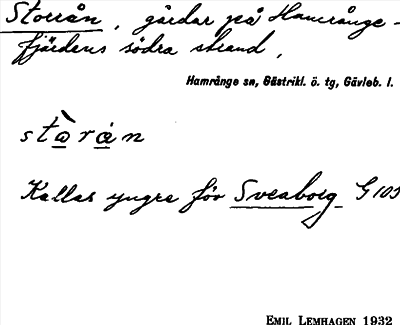 Storrån, gårdar på Hamrånge-
fjärdens södra strand,
Hamrånge sn, Gästrikl. ö. tg, Gävleb. l.
stà̱rá̱n
Kallas yngre för Sveaborg G 105
EMIL LEMHAGEN 1932